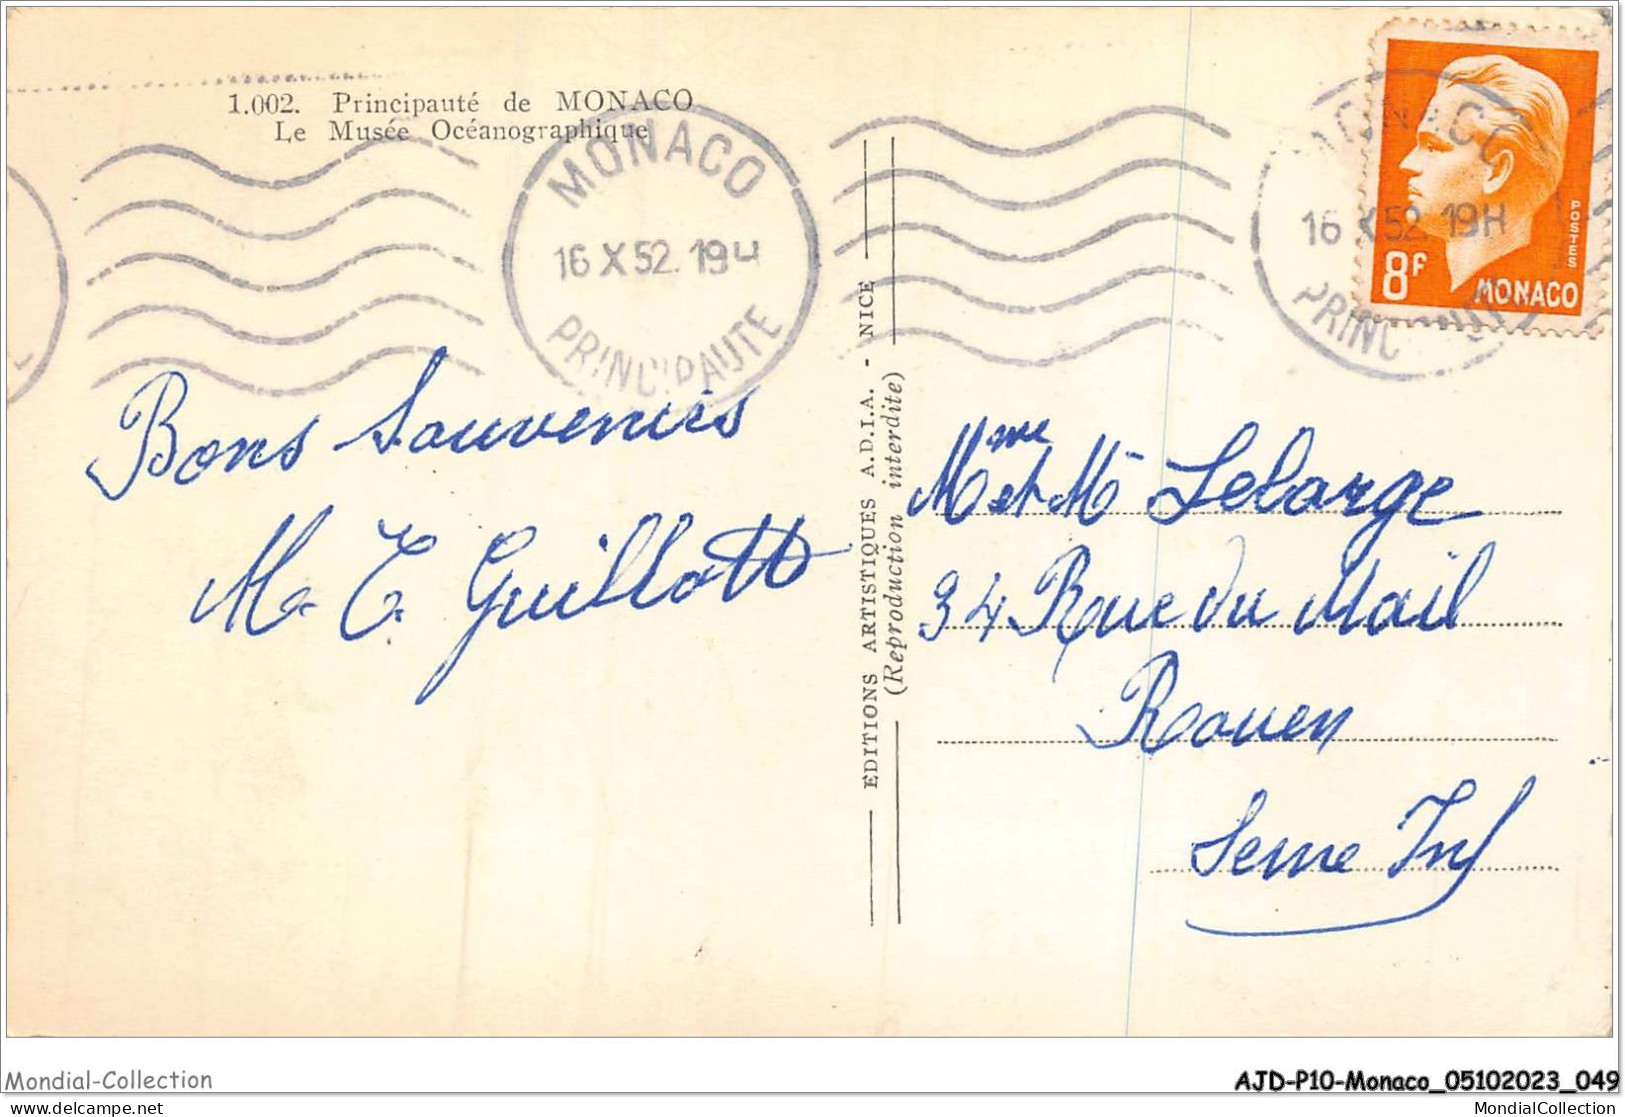 1.002. Principauté de MONACO
Le Musée Océanographique
MONACO
16 X 52. 19H
PRINCIPAUTE
MONACO
16 X 52 19H
PRINCIPAUTE
POSTES
8F
MONACO
Bons Souvenirs
M. E. Guillott
EDITIONS ARTISTIQUES A.D.I.A. - NICE
(Reproduction interdite)
Mme et Mr Lelarge
34 Rue du Mail
Rouen
Seine Inf
Mondial-Collection
AJD-P10-Monaco_05102023_049
www.delcampe.net
MondialCollection